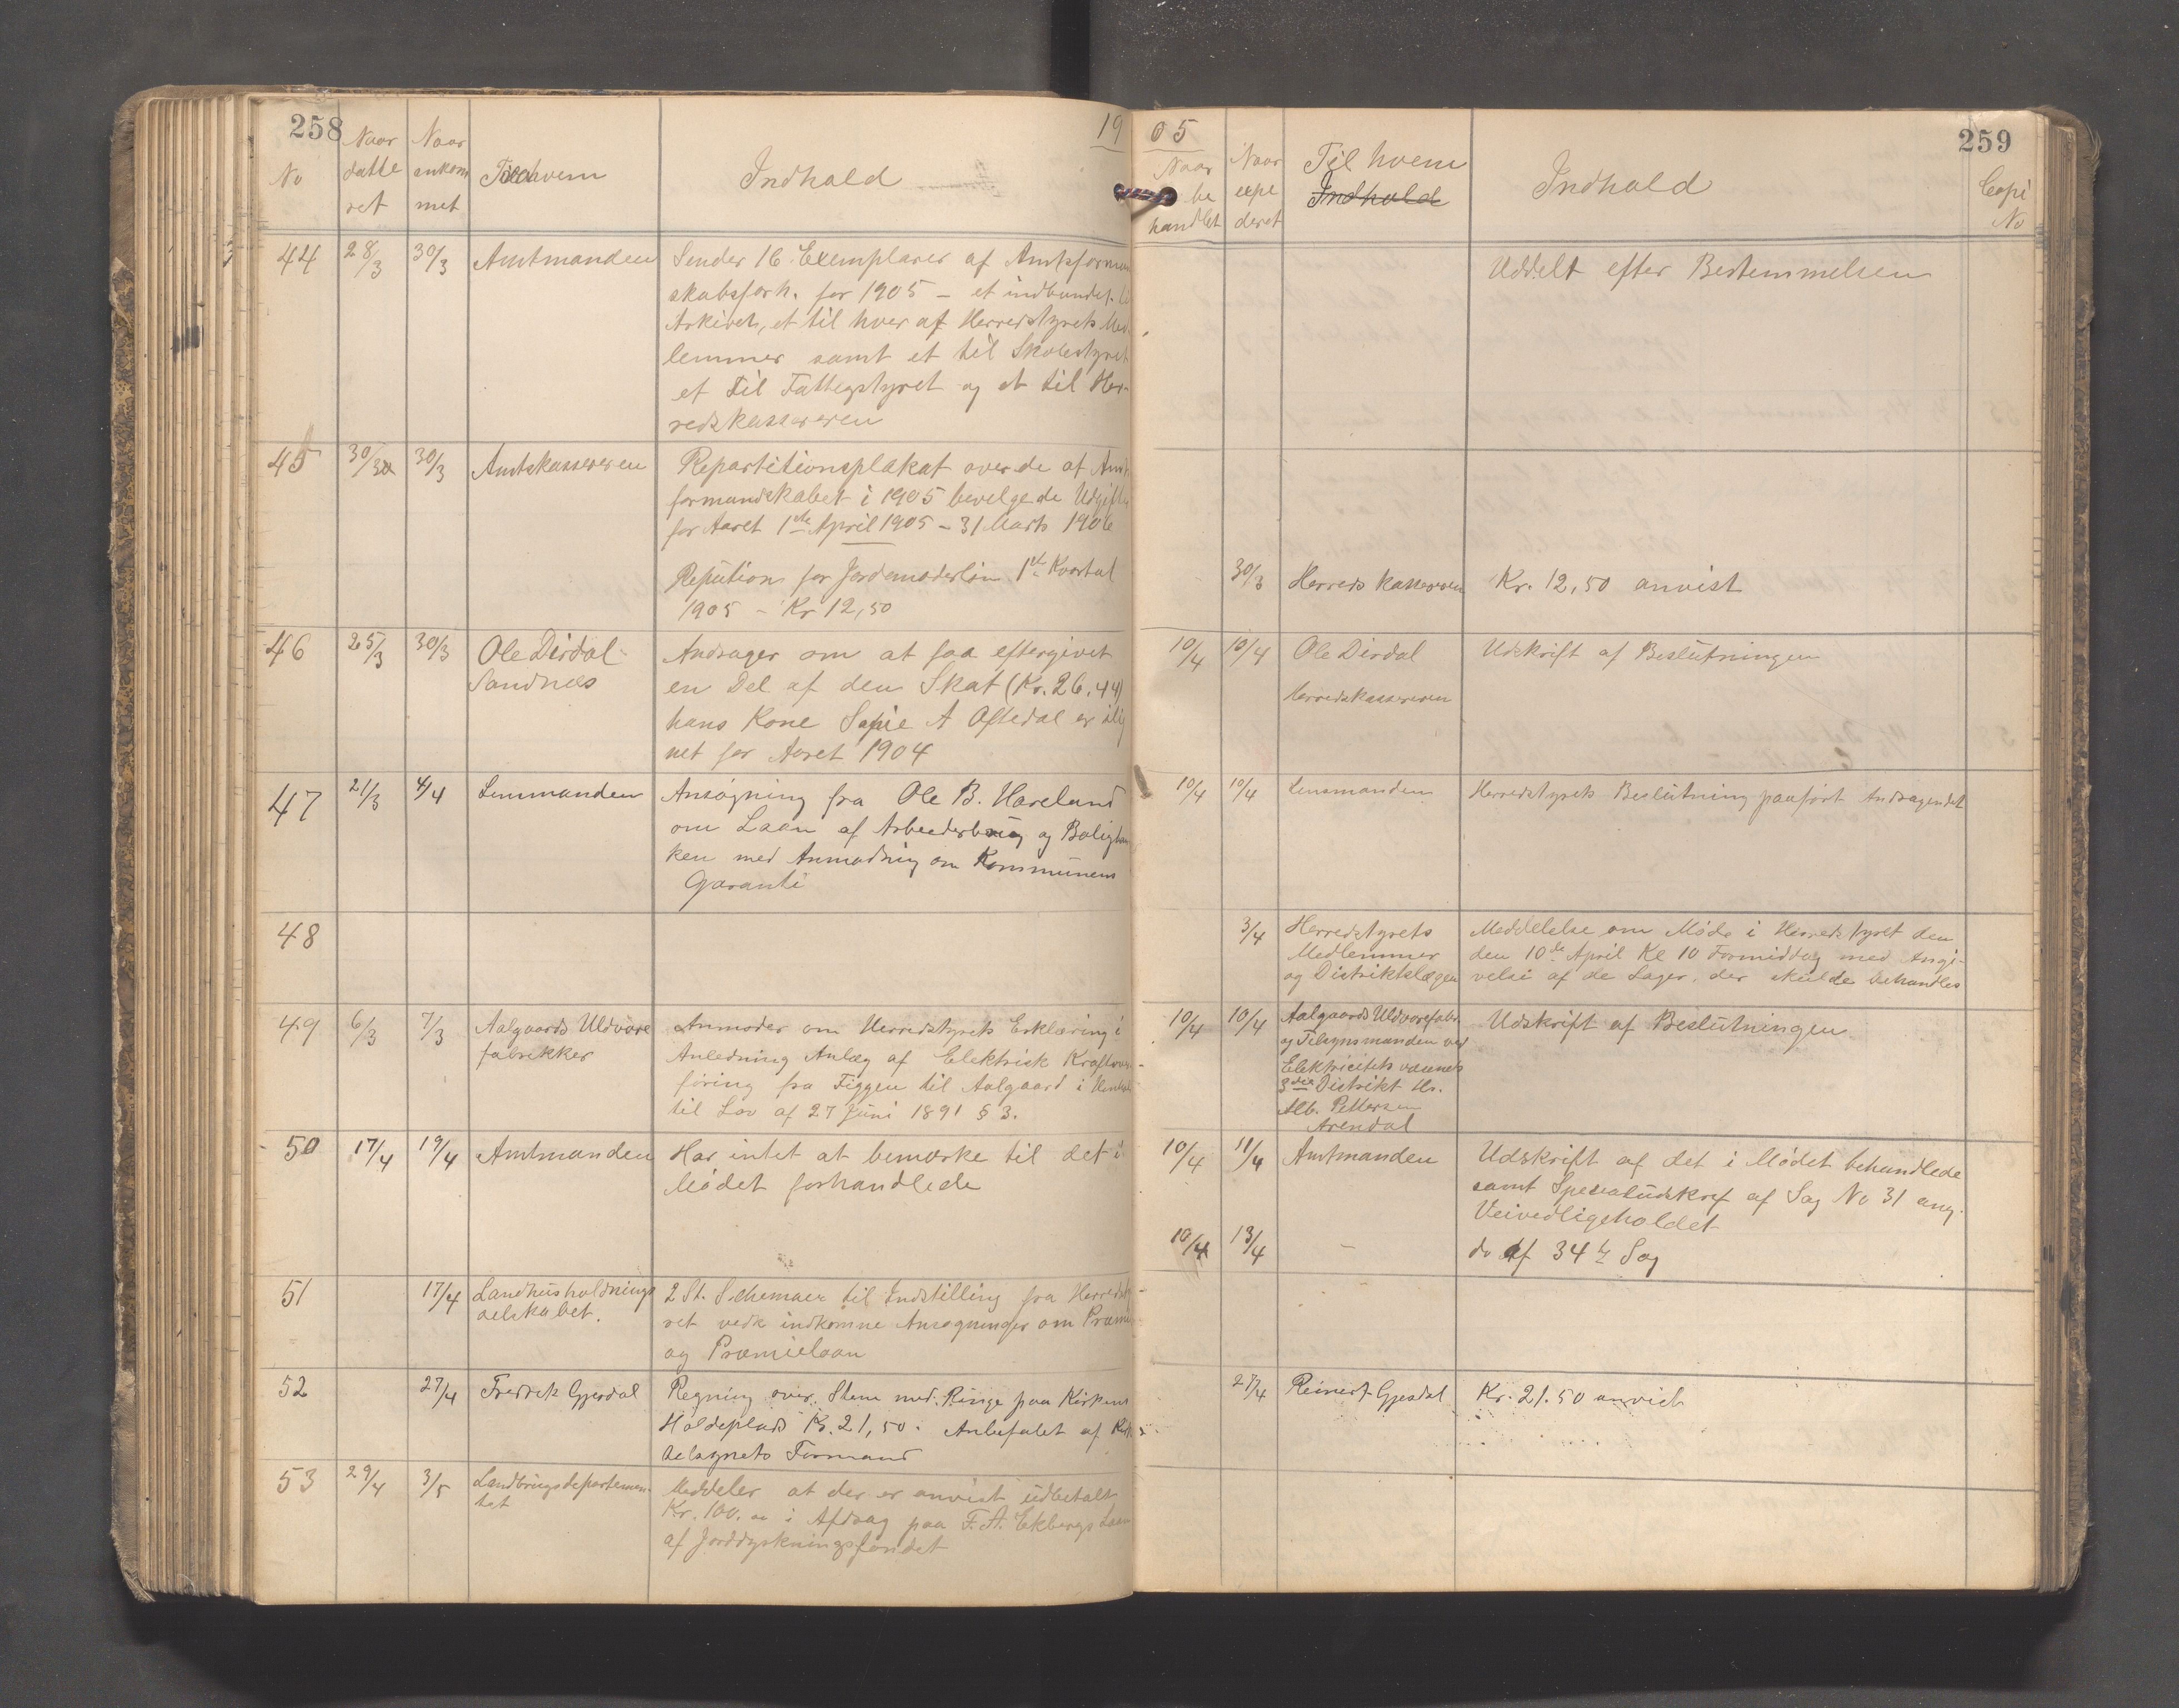 258
19
No
Naar
datte
ret
Naar
ankom
met
hvem
Indhold
44 28/3 30/3 Amtmanden
Sender 16 Exemplarer af Amtsforman
skabsforh. for 1905 – et indbundet
Arkivet, et til hver af Herredstyrets Med
lemmer samt et til Skolestyret
et til Fattigstyret og et til Her-
redskassereren
45 30/3 30/3 Amtskassereren
Repartitionsplakat over de af Amts
formandskabet i 1905 bevilgede Udgifter
for Aaret 1ste April 1905 – 31 Marts 1906
for Jordemoderløn 1ste Kvartal
1905 – Kr 12,50
46 25/3 30/3 Ole Dirdal
Sandnes
Andrager om at faa eftergivet
en Del af den Skat (Kr. 26,44)
hans Kone A Oftedal er ilig
net for Aaret 1904
47 21/3 4/4 Lensmanden
Ansøgning fra Ole B. Haveland
om Laan af og Boligban
ken med Anmodning om Kommunens
Garanti
48
49 6/3 7/3 Aalgaards Uldvare
fabrikker
Anmoder om Herredstyrets Erklæring i
Anledning Anlæg af Elektrisk Kraftover-
føring fra Figgen til Aalgaard i Henhold
til Lov af 27 Juni 1891 § 3.
50 17/4 19/4 Amtmanden
Har intet at bemærke til det i
Mødet forhandlede
51 17/4 Landhusholdnings
selskabet.
2 St. Schemaer til Indstilling fra Herredsty-
ret vedk indkomne Ansøgninger om Præmie
og Præmielaan
52 27/4 Fredrik Gjesdal
Regning over Stene med Ringe paa Kirkens
Holdeplads Kr. 21,50. Anbefalet af Kirke
tilsynets Formand
53 29/4 3/5 Landbrugsdepartemen-
tet
Meddeler at der er anvist udbetalt
Kr. 100.00 i Afdrag paa F. A. Ekbergs Laan
af Jorddyrkningsfondet
05
259
Naar
be
handlet
Naar
expe
deret
Til hvem
Indhold
Indhold
Copi
No
Uddelt efter Bestemmelsen
30/3 Herredskassereren Kr. 12,50 anvist
10/4 10/4 Ole Dirdal Udskrift af Beslutningen
Herredskassereren
10/4 10/4 Lensmanden Herredstyrets Beslutning paaført Andragendet
3/4 Herredstyrets
Medlemmer
og Distriktslægen
Meddelelse om Møde i Herredstyret den
den 10de April Kl 10 Formiddag med Angi-
velse af de Sager, der skulde behandles
10/4 10/4 Aalgaards Uldvarefabr.
og Tilsynsmanden ved
Elektricitetsvæsnets
3die Distrikt Hr.
Alb. Pettersen
Arendal
Udskrift af Beslutningen
10/4 11/4 Amtmanden
Udskrift af det i Mødet behandlede
samt Spesialudskrif af Sag No 31 ang.
Veivedligeholdet
10/4 13/4 – do af 34te Sag
27/4 Reinert Gjesdal Kr. 21.50 anvist